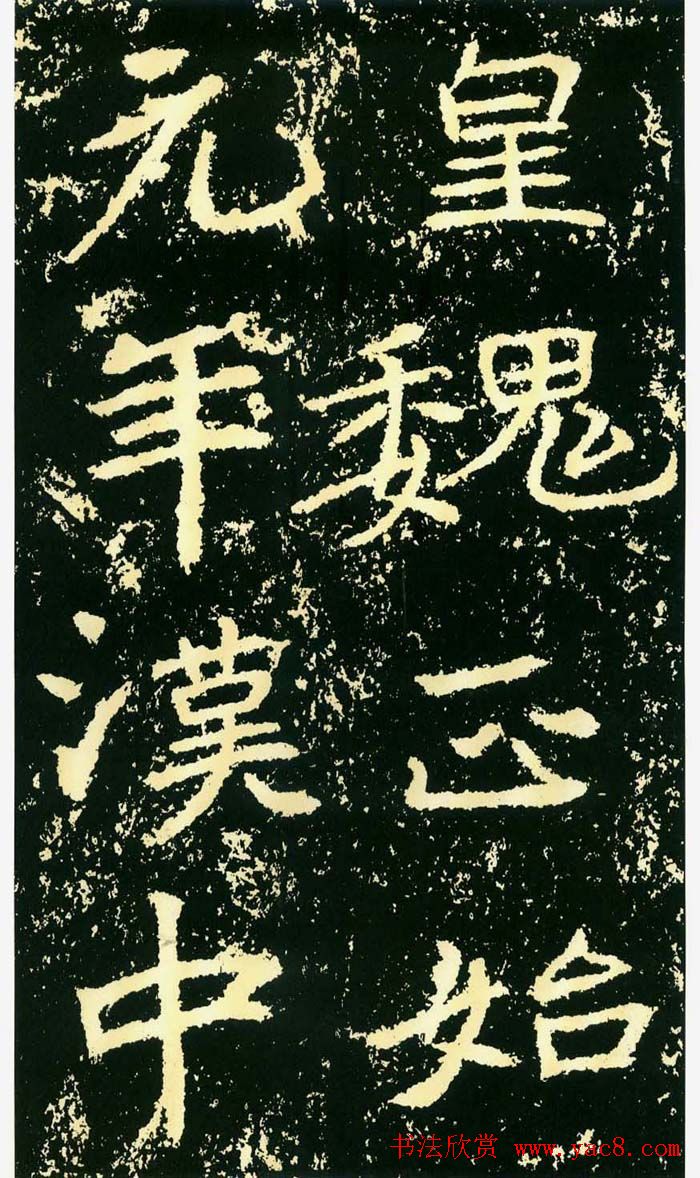 皇魏正始
元年漢中
书法欣赏 www.yac8.com